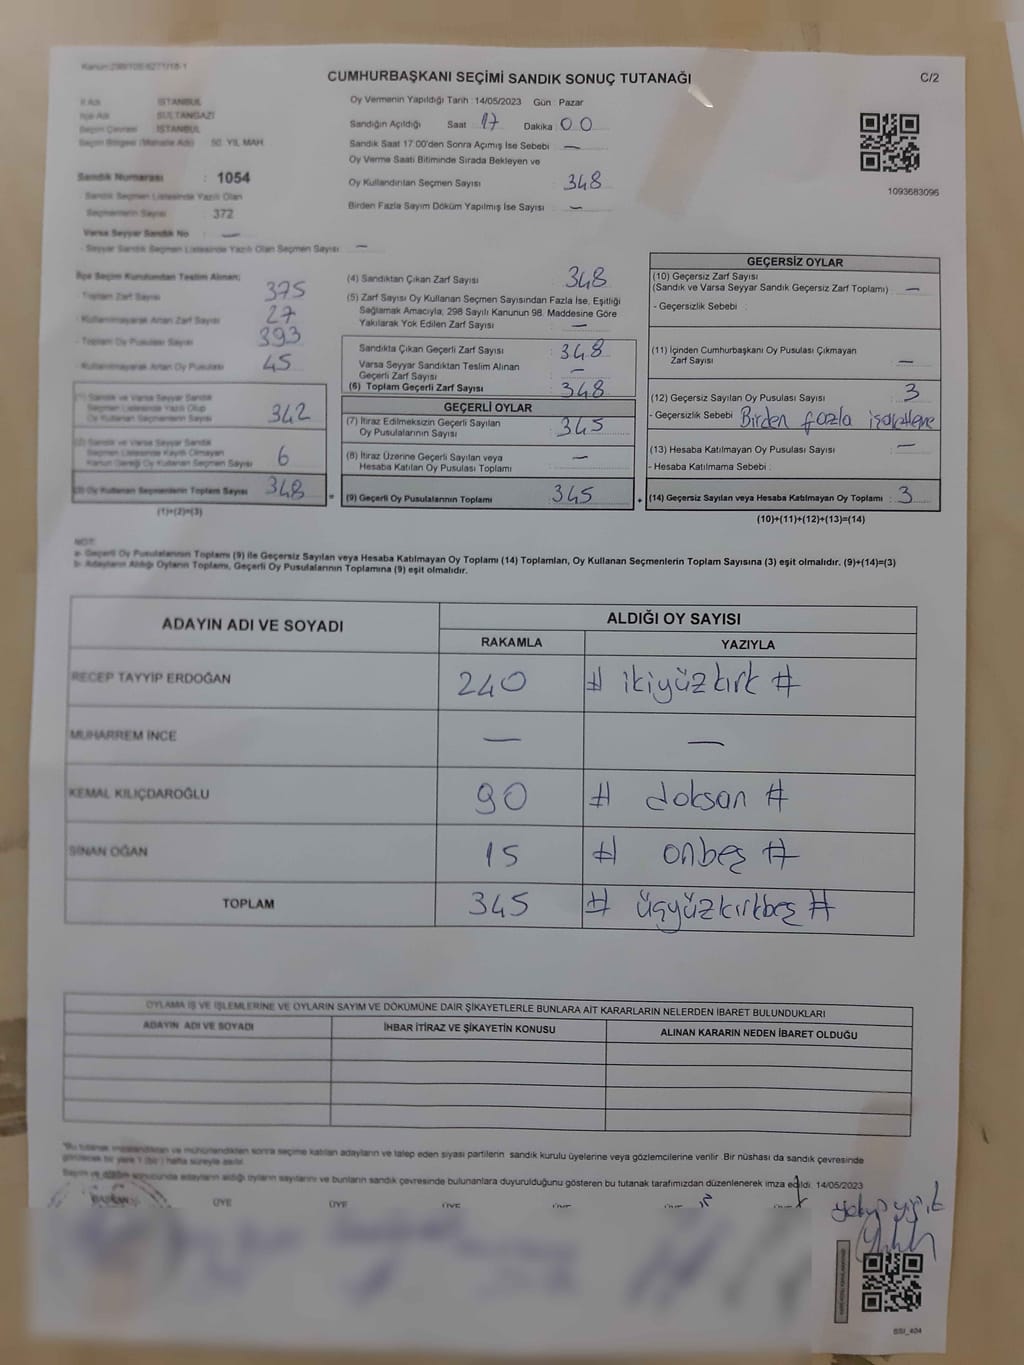 Kanun:298/105-6271/18-1
CUMHURBAŞKANI SEÇİMİ SANDIK SONUÇ TUTANAĞI
C/2
İl Adı : İSTANBUL
İlçe Adı : SULTANGAZİ
Seçim Çevresi : İSTANBUL
Seçim Bölgesi (Mahalle Adı) : 50. YIL MAH.
Sandık Numarası : 1054
- Sandık Seçmen Listesinde Yazılı Olan
Seçmenlerin Sayısı : 372
Varsa Seyyar Sandık No : —
- Seyyar Sandık Seçmen Listesinde Yazılı Olan Seçmen Sayısı : —
Oy Vermenin Yapıldığı Tarih : 14/05/2023 Gün : Pazar
Sandığın Açıldığı Saat : 17 Dakika : 00
Sandık Saat 17:00'den Sonra Açımış İse Sebebi : —
Oy Verme Saati Bitiminde Sırada Bekleyen ve
Oy Kullandırılan Seçmen Sayısı : 348
Birden Fazla Sayım Döküm Yapılmış İse Sayısı : —
1093683096
İlçe Seçim Kurulundan Teslim Alınan;
- Toplam Zarf Sayısı : 375
- Kullanılmayarak Artan Zarf Sayısı : 27
- Toplam Oy Pusulası Sayısı : 393
- Kullanılmayarak Artan Oy Pusulası : 45
(1) Sandık ve Varsa Seyyar Sandık
Seçmen Listesinde Yazılı Olup
Oy Kullanan Seçmenlerin Sayısı : 342
(2) Sandık ve Varsa Seyyar Sandık
Seçmen Listesinde Kayıtlı Olmayan
Kanun Gereği Oy Kullanan Seçmen Sayısı : 6
(3) Oy Kullanan Seçmenlerin Toplam Sayısı : 348
(1)+(2)=(3)
=
(4) Sandıktan Çıkan Zarf Sayısı : 348
(5) Zarf Sayısı Oy Kullanan Seçmen Sayısından Fazla İse, Eşitliği
Sağlamak Amacıyla, 298 Sayılı Kanunun 98. Maddesine Göre
Yakılarak Yok Edilen Zarf Sayısı : —
Sandıkta Çıkan Geçerli Zarf Sayısı : 348
Varsa Seyyar Sandıktan Teslim Alınan
Geçerli Zarf Sayısı : —
(6) Toplam Geçerli Zarf Sayısı : 348
GEÇERLİ OYLAR
(7) İtiraz Edilmeksizin Geçerli Sayılan
Oy Pusulalarının Sayısı : 345
(8) İtiraz Üzerine Geçerli Sayılan veya
Hesaba Katılan Oy Pusulası Toplamı : —
(9) Geçerli Oy Pusulalarının Toplamı : 345
+
GEÇERSİZ OYLAR
(10) Geçersiz Zarf Sayısı
(Sandık ve Varsa Seyyar Sandık Geçersiz Zarf Toplamı) : —
- Geçersizlik Sebebi :
(11) İçinden Cumhurbaşkanı Oy Pusulası Çıkmayan
Zarf Sayısı : —
(12) Geçersiz Sayılan Oy Pusulası Sayısı : 3
- Geçersizlik Sebebi : Birden fazla işaretleme
(13) Hesaba Katılmayan Oy Pusulası Sayısı : —
- Hesaba Katılmama Sebebi :
(14) Geçersiz Sayılan veya Hesaba Katılmayan Oy Toplamı : 3
(10)+(11)+(12)+(13)=(14)
NOT:
a- Geçerli Oy Pusulalarının Toplamı (9) ile Geçersiz Sayılan veya Hesaba Katılmayan Oy Toplamı (14) Toplamları, Oy Kullanan Seçmenlerin Toplam Sayısına (3) eşit olmalıdır. (9)+(14)=(3)
b- Adayların Aldığı Oyların Toplamı, Geçerli Oy Pusulalarının Toplamına (9) eşit olmalıdır.
ADAYIN ADI VE SOYADI
ALDIĞI OY SAYISI
RAKAMLA YAZIYLA
RECEP TAYYİP ERDOĞAN 240 # ikiyüzkırk #
MUHARREM İNCE — —
KEMAL KILIÇDAROĞLU 90 # doksan #
SİNAN OĞAN 15 # onbeş #
TOPLAM 345 # üçyüzkırkbeş #
OYLAMA İŞ VE İŞLEMLERİNE VE OYLARIN SAYIM VE DÖKÜMÜNE DAİR ŞİKAYETLERLE BUNLARA AİT KARARLARIN NELERDEN İBARET BULUNDUKLARI
ADAYIN ADI VE SOYADI İHBAR İTİRAZ VE ŞİKAYETİN KONUSU ALINAN KARARIN NEDEN İBARET OLDUĞU
*Bu tutanak imzalandıktan ve mühürlendikten sonra seçime katılan adayların ve talep eden siyasi partilerin sandık kurulu üyelerine veya gözlemcilerine verilir. Bir nüshası da sandık çevresinde
görülecek bir yere 1 (bir) hafta süreyle asılır.
Seçim ve döküm sonucunda adayların aldığı oyların sayılarını ve bunların sandık çevresinde bulunanlara duyurulduğunu gösteren bu tutanak tarafımızdan düzenlenerek imza edildi. 14/05/2023
BAŞKAN ÜYE ÜYE ÜYE
yakup yiğit
SSI_404